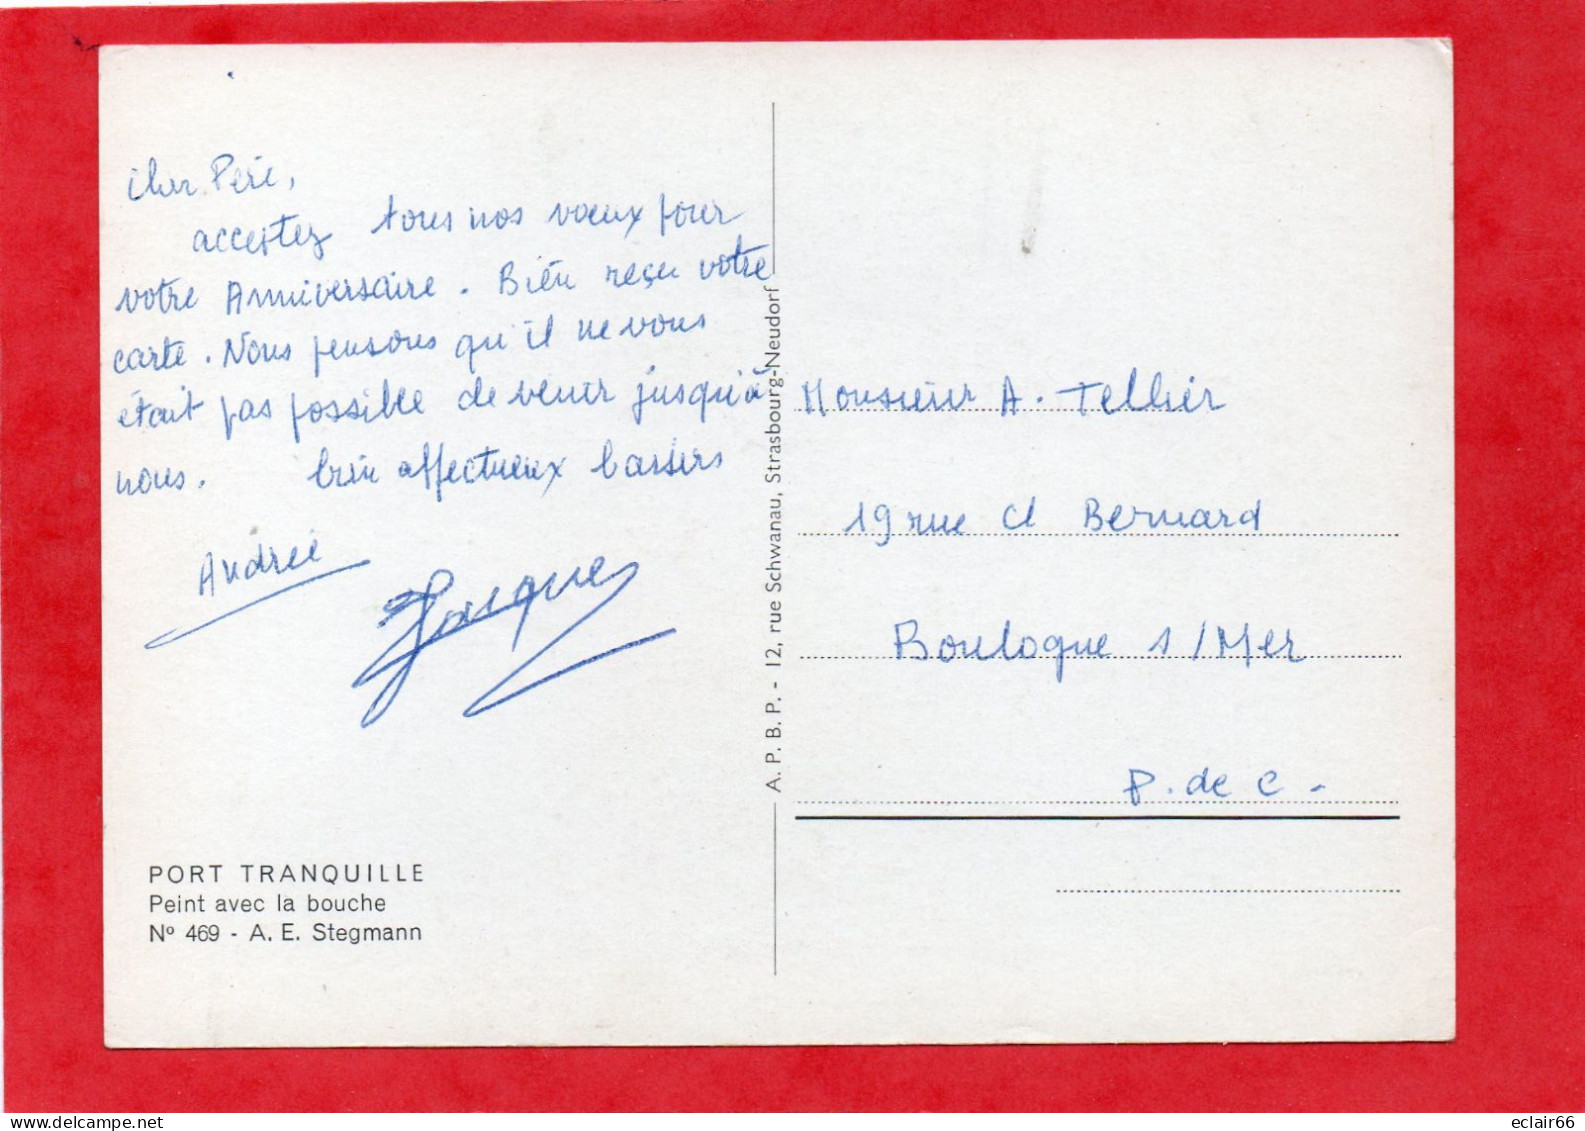 Cher Père,
acceptez tous nos voeux pour
votre Anniversaire. Bien reçu votre
carte. Nous pensons qu'il ne vous
était pas possible de venir jusqu'à
nous. bien affectueux baisers
Andrée
Jacques
PORT TRANQUILLE
Peint avec la bouche
Nº 469 - A. E. Stegmann
A. P. B. P. - 12, rue Schwanau, Strasbourg-Neudorf
Monsieur A. Tellier
19 rue Cl Bernard
Boulogne s/Mer
P. de C.
eclair66